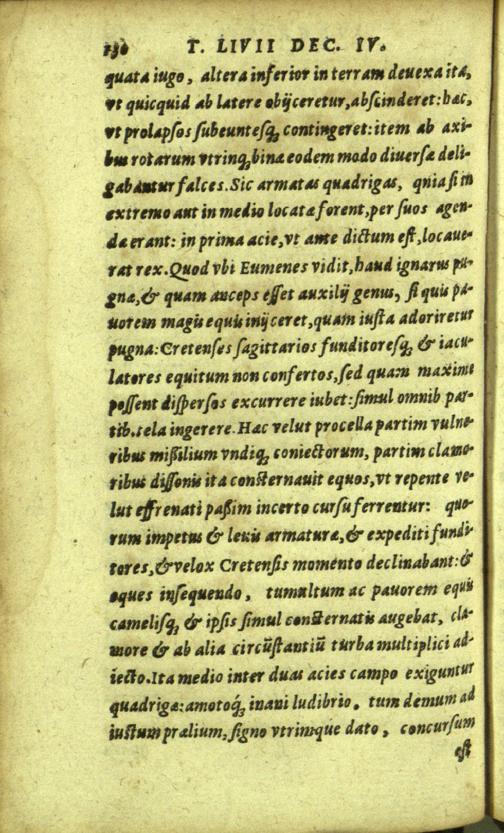 130 T. LIVII DEC. IV.
quata iugo, altera inferior in terram deuexa ita,
vt quicquid ab latere obijceretur, abscinderet: hæc,
vt prolapsos subeuntesq́; contingeret: item ab axi-
bus rotarum vtrinq; binæ eodem modo diuersæ deli-
gabantur falces. Sic armatas quadrigas, qnia si in
extremo aut in medio locatæ forent, per suos agen-
dæ erant: in prima acie, vt ante dictum est, locaue-
rat rex. Quod vbi Eumenes vidit, haud ignarus pu-
gnæ, & quam anceps esset auxilij genus, si quis pa-
uorem magis equis inijceret, quam iusta adoriretur
pugna: Cretenses sagittarios funditoresq́; & iacu-
latores equitum non confertos, sed quam maxime
possent dispersos excurrere iubet: simul omnib par-
tib. tela ingerere. Hæc velut procella partim vulne-
ribus missilium vndiq; coniectorum, partim clamo-
ribus dissonis ita consternauit equos, vt repente ve-
lut effrenati passim incerto cursu ferrentur: quo-
rum impetus & leuis armaturæ, & expediti fundi-
tores, & velox Cretensis momento declinabant: &
eques insequendo, tumultum ac pauorem equis
camelisq́; & ipsis simul consternatis augebat, cla-
more & ab alia circũstantiũ turba multiplici ad-
iecto. Ita medio inter duas acies campo exiguntur
quadrigæ: amotoq́; inani ludibrio. tum demum ad
iustum prælium, signo vtrimque dato, concursum
est